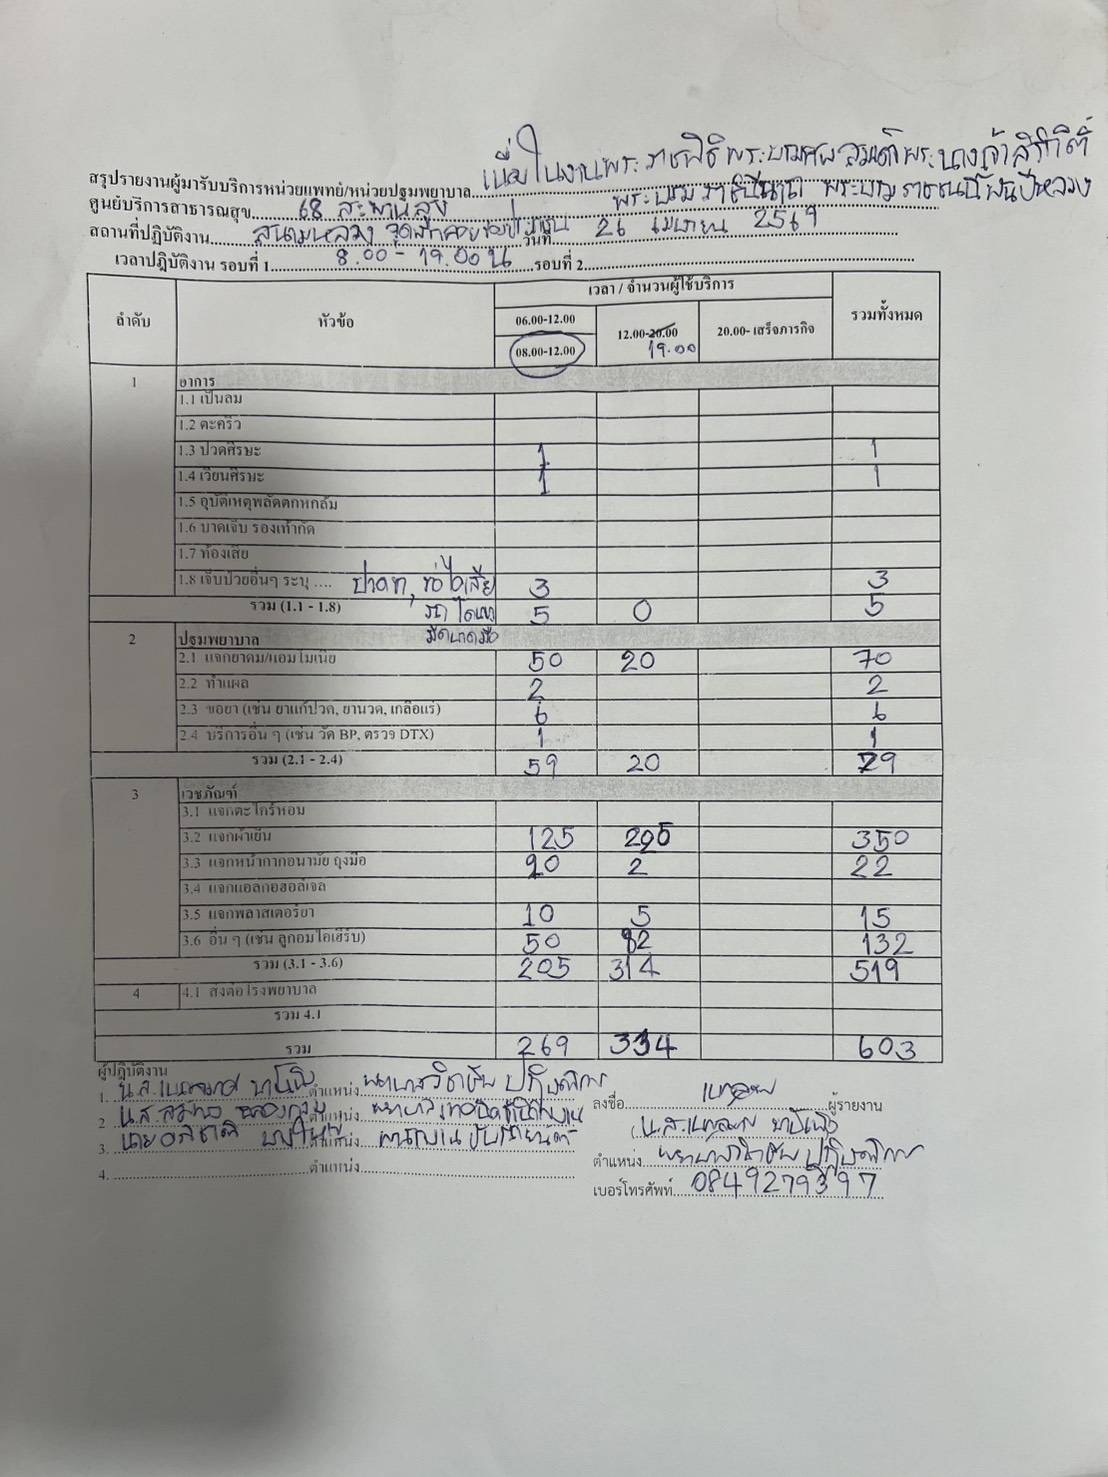 เนื่องในงานพระราชพิธีพระบรมศพ สมเด็จพระนางเจ้าสิริกิติ์
สรุปรายงานผู้มารับบริการหน่วยแพทย์/หน่วยปฐมพยาบาล
พระบรมราชินีนาถ พระบรมราชชนนีพันปีหลวง
ศูนย์บริการสาธารณสุข 68 สะพานสูง
สถานที่ปฏิบัติงาน สนามหลวง จุดพักคอย วันที่ 26 เมษายน 2569
เวลาปฏิบัติงาน รอบที่ 1 8.00 - 19.00 น รอบที่ 2
ลำดับ หัวข้อ เวลา / จำนวนผู้ใช้บริการ รวมทั้งหมด
06.00-12.00 12.00-20.00 20.00- เสร็จภารกิจ
08.00-12.00 19.00
1 อาการ
1.1 เป็นลม
1.2 ตะคริว
1.3 ปวดศีรษะ 1 1
1.4 เวียนศีรษะ 1 1
1.5 อุบัติเหตุพลัดตกหกล้ม
1.6 บาดเจ็บ รองเท้ากัด
1.7 ท้องเสีย
1.8 เจ็บป่วยอื่นๆ ระบุ .... 3 3
รวม (1.1 - 1.8) 5 0 5
มีดบาดมือ
2 ปฐมพยาบาล
2.1 แจกยาดม/แอมโมเนีย 50 20 70
2.2 ทำแผล 2 2
2.3 ขอยา (เช่น ยาแก้ปวด, ยานวด, เกลือแร่) 6 6
2.4 บริการอื่น ๆ (เช่น วัด BP, ตรวจ DTX) 1 1
รวม (2.1 - 2.4) 59 20 79
3 เวชภัณฑ์
3.1 แจกตะไคร้หอม
3.2 แจกผ้าเย็น 125 350
3.3 แจกหน้ากากอนามัย ถุงมือ 20 2 22
3.4 แจกแอลกอฮอล์เจล
3.5 แจกพลาสเตอร์ยา 10 5 15
3.6 อื่น ๆ (เช่น ลูกอม โอเฮิร์บ) 50 82 132
รวม (3.1 - 3.6) 205 314 519
4 4.1 ส่งต่อโรงพยาบาล
รวม 4.1
รวม 269 334 603
ผู้ปฏิบัติงาน
1. น.ส. ตำแหน่ง พยาบาลวิชาชีพปฏิบัติการ
2. น.ส. ตำแหน่ง
3. นาย ตำแหน่ง พนักงานขับรถยนต์
4. ตำแหน่ง
ลงชื่อ ผู้รายงาน
(น.ส.
ตำแหน่ง พยาบาลวิชาชีพปฏิบัติการ
เบอร์โทรศัพท์ 0849279397